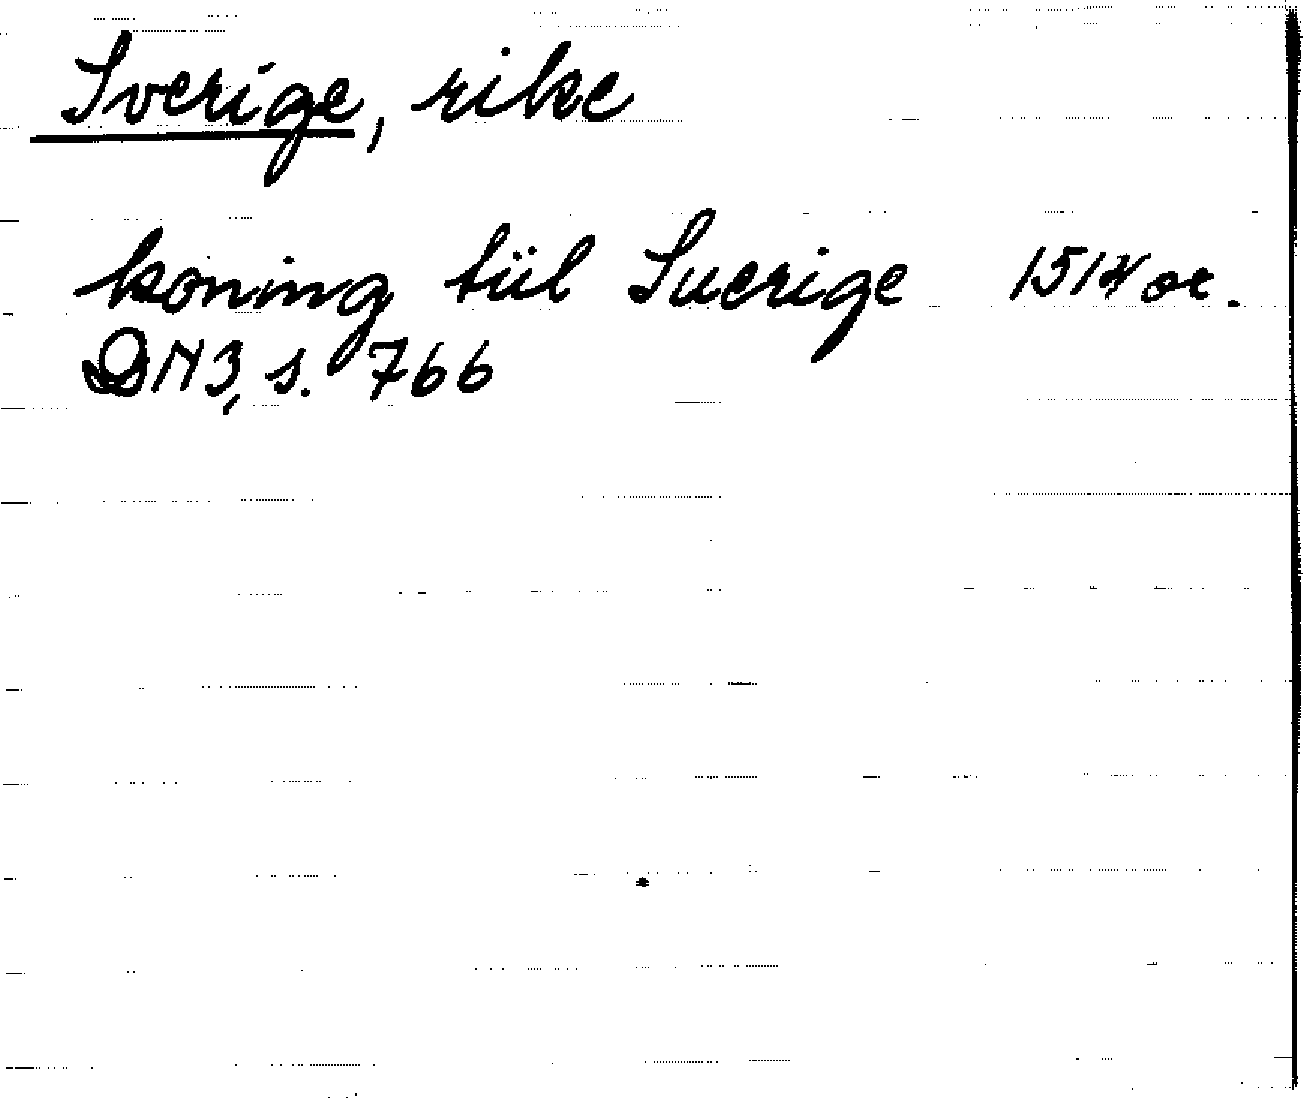 Sverige, rike
koning tiil Suerige 1514 or.
DN3, s. 766